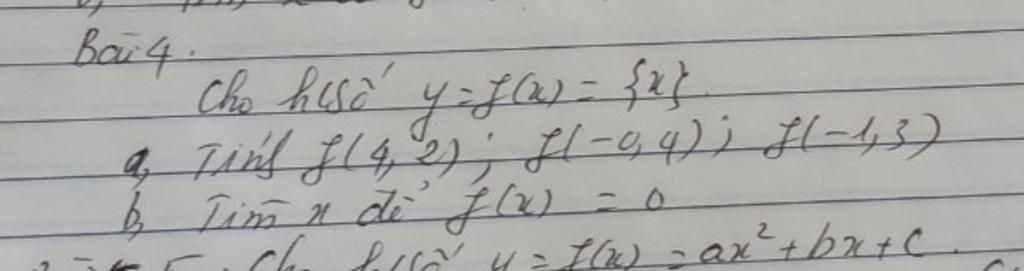 Bài 4.
Cho h/số y = f(x) = {x}.
a, Tính f(4,2); f(-0,4); f(-1,3)
b, Tìm x để f(x) = 0
5. Cho h/số y = f(x) = ax² + bx + c.